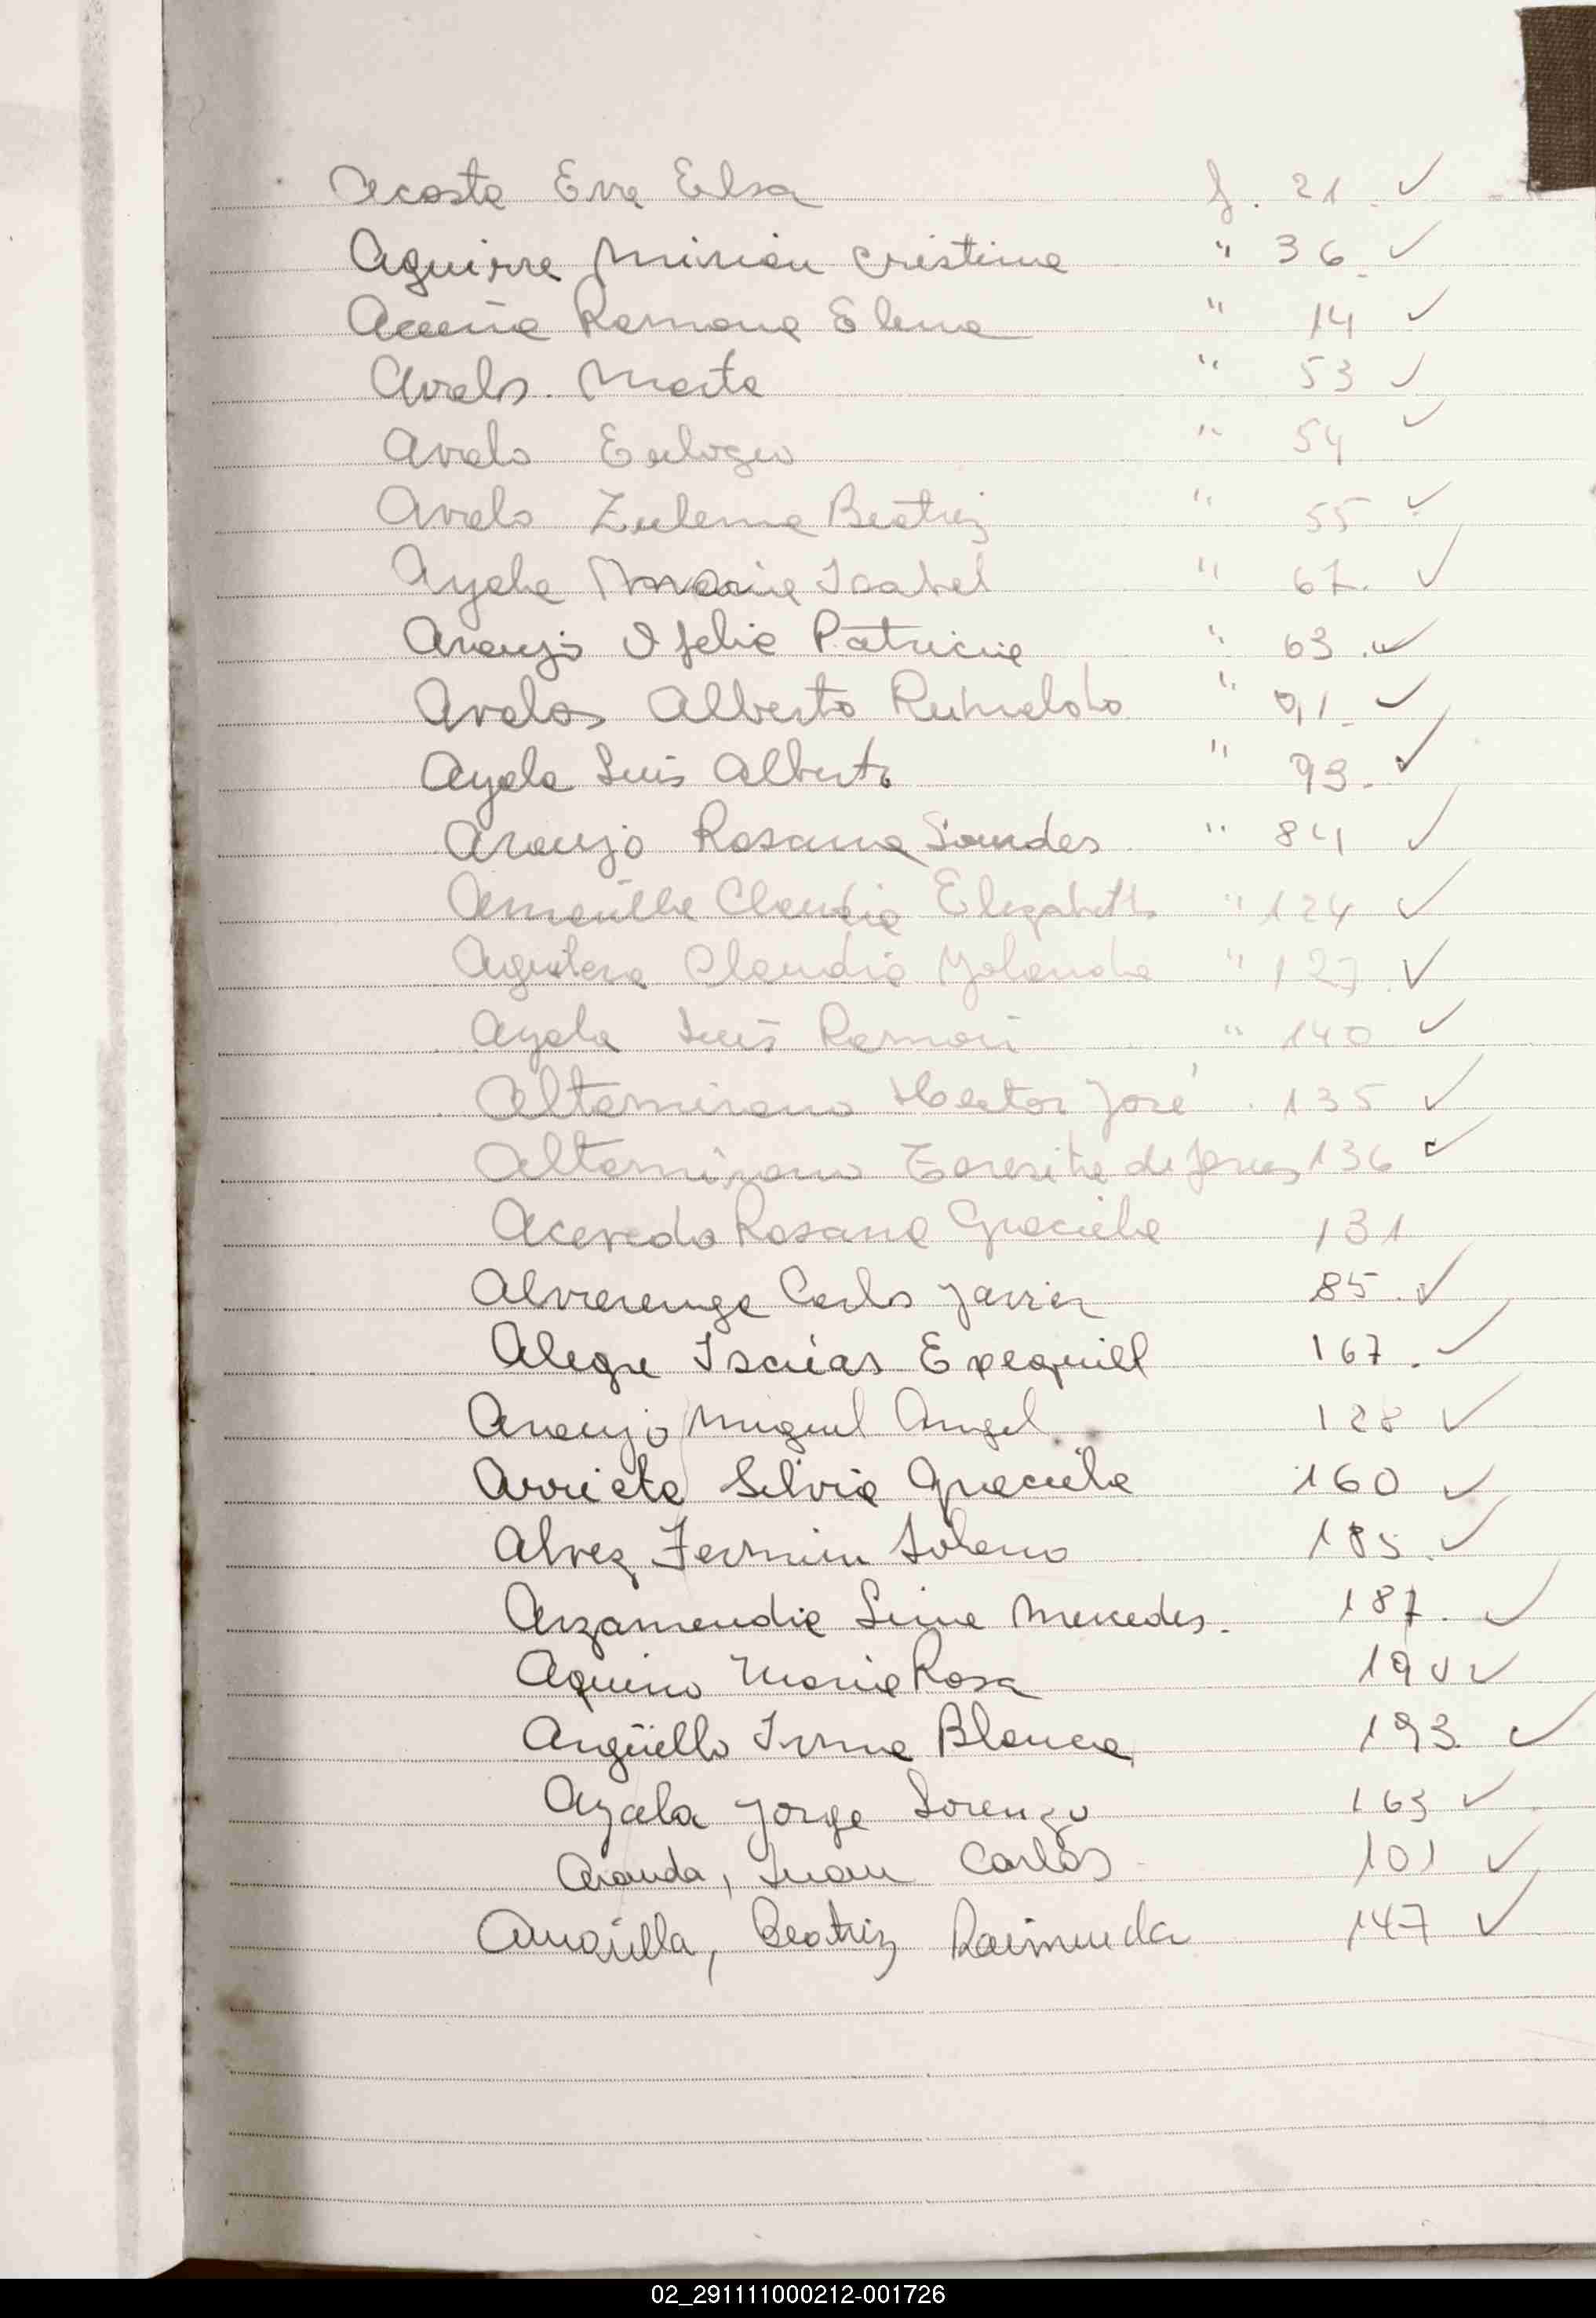 Acosta Eva Elsa f. 21. ✓
Aguirre Mirian Cristina " 36. ✓
Acuña Ramona Elena " 14 ✓
Avalos. Marta " 53 ✓
Avalo Eulogio " 54 ✓
Avalo Zulema Beatriz " 55 ✓
Ayala Maria Isabel " 67. ✓
Araujo Ofelia Patricia " 63. ✓
Avalos Alberto Rumaldo " 91. ✓
Ayala Luis Alberto " 93. ✓
Araujo Rosana Lourdes " 84 ✓
Amarilla Claudia Elizabeth " 124 ✓
Aguilera Claudia Yolanda " 127. ✓
Ayala Luis Ramón " 140 ✓
Altamirano Hector José . 135 ✓
Altamirano Teresita de Jesus 136 ✓
Acevedo Rosana Graciela 131
Alvarenga Carlos Javier 85. ✓
Alegre Isaías Exequiel 167. ✓
Araujo Miguel Angel 128 ✓
Arrieta Silvia Graciela 160 ✓
Alvez Fermin Solano 185. ✓
Arzamendia Lina Mercedes. 187. ✓
Aquino Maria Rosa ✓
Argüello Irma Blanca 193. ✓
Ayala Jorge Lorenzo 163 ✓
Aranda, Juan Carlos 101 ✓
Amarilla, Beatriz Raimunda 147 ✓
02_291111000212-001726